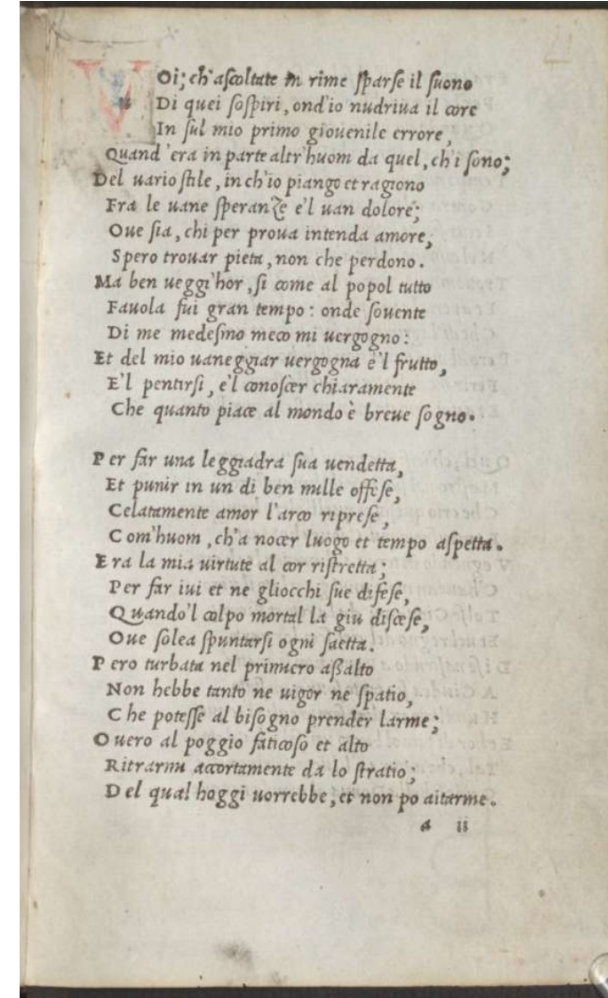 VOi; ch'ascoltate in rime sparse il suono
Di quei sospiri, ond'io nudriua il core
In sul mio primo giouenile errore,
Quand'era in parte altr'huom da quel, ch'i sono;
Del uario stile, in ch'io piango et ragiono
Fra le uane speranze e'l uan dolore;
Oue sia, chi per proua intenda amore,
Spero trouar pieta, non che perdono.
Ma ben ueggi'hor, si come al popol tutto
Fauola fui gran tempo: onde souente
Di me medesmo meco mi uergogno:
Et del mio uaneggiar uergogna è'l frutto,
E'l pentirsi, e'l conoscer chiaramente
Che quanto piace al mondo è breue sogno.
Per far una leggiadra sua uendetta,
Et punir in un di ben mille offese,
Celatamente amor l'arco riprese,
Com'huom, ch'a nocer luogo et tempo aspetta.
Era la mia uirtute al cor ristretta;
Per far iui et ne gliocchi sue difese,
Quando'l colpo mortal la giu discese,
Oue solea spuntarsi ogni saetta.
Pero turbata nel primiero aßalto
Non hebbe tanto ne uigor ne spatio,
Che potesse al bisogno prender larme;
Ouero al poggio faticoso et alto
Ritrarmi accortamente da lo stratio;
Del qual hoggi uorrebbe, et non po aitarme.
a ii